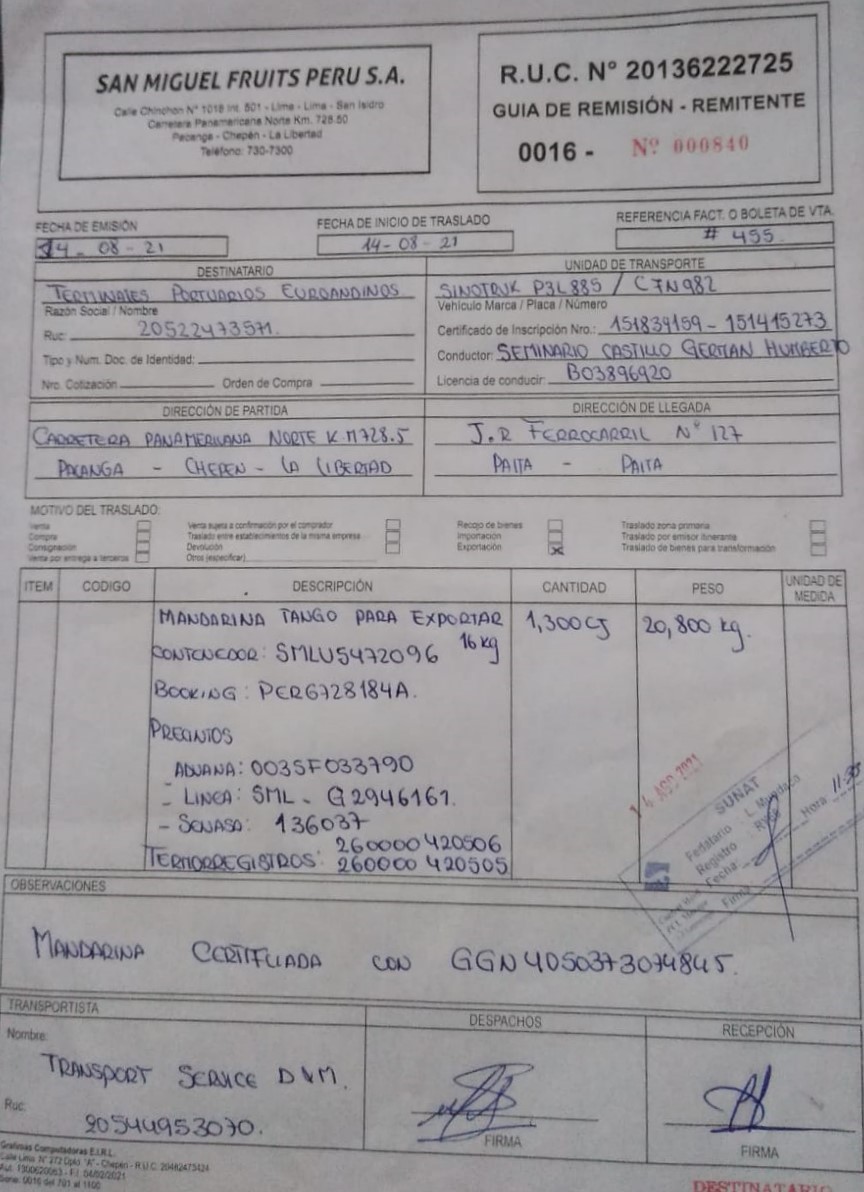 SAN MIGUEL FRUITS PERU S.A.
Calle Chinchon N° 1018 Int. 501 - Lima - Lima - San Isidro
Carretera Panamericana Norte Km. 728.50
Pacanga - Chepén - La Libertad
Teléfono: 730-7300
R.U.C. N° 20136222725
GUIA DE REMISIÓN - REMITENTE
0016 - Nº 000840
FECHA DE EMISIÓN
14 - 08 - 21
FECHA DE INICIO DE TRASLADO
14 - 08 - 21
REFERENCIA FACT. O BOLETA DE VTA.
# 455
DESTINATARIO
TERMINALES PORTUARIOS EUROANDINOS
Razón Social / Nombre
Ruc: 20522473571.
Tipo y Num. Doc. de Identidad:
Nro. Cotización Orden de Compra
UNIDAD DE TRANSPORTE
SINOTRUK P3L885 / C7N982
Vehículo Marca / Placa / Número
Certificado de Inscripción Nro.: 151839159 - 151415273
Conductor: SEMINARIO CASTILLO GERMAN HUMBERTO
Licencia de conducir: B03896920
DIRECCIÓN DE PARTIDA
CARRETERA PANAMERICANA NORTE K.M728.5
PACANGA - CHEPEN - LA LIBERTAD
DIRECCIÓN DE LLEGADA
J.R FERROCARRIL N° 127
PAITA - PAITA
MOTIVO DEL TRASLADO:
Venta
Compra
Consignación
Venta por entrega a terceros
Venta sujeta a confirmación por el comprador
Traslado entre establecimientos de la misma empresa
Devolución
Otros (especificar)
Recojo de bienes
Importación
Exportación X
Traslado zona primaria
Traslado por emisor itinerante
Traslado de bienes para transformación
ITEM CODIGO DESCRIPCIÓN CANTIDAD PESO UNIDAD DE MEDIDA
MANDARINA TANGO PARA EXPORTAR 1,300CJ 20,800 kg.
16 kg
CONTENEDOR: SMLU5472096
BOOKING: PER6728184A.
PRECINTOS
ADUANA: 0035F033790
- LINEA: SML - G2946161.
- SENASA: 136037
TERMORREGISTROS: 260000420506
260000420505
14 AGO 2021
SUNAT
Fedatario: L.
Registro
Fecha: Hora
Firma
OBSERVACIONES
MANDARINA CERTIFICADA CON GGN 4050373074845.
TRANSPORTISTA
Nombre:
TRANSPORT SERVICE D&M.
Ruc:
20544953070.
DESPACHOS
FIRMA
RECEPCIÓN
FIRMA
Graficas Computadoras E.I.R.L.
Calle Lima N° 272 Dpto. "A" - Chepén - R.U.C. 20482475424
Aut. 1900620063 - F.I. 04/02/2021
Serie: 0016 del 701 al 1100
DESTINATARIO